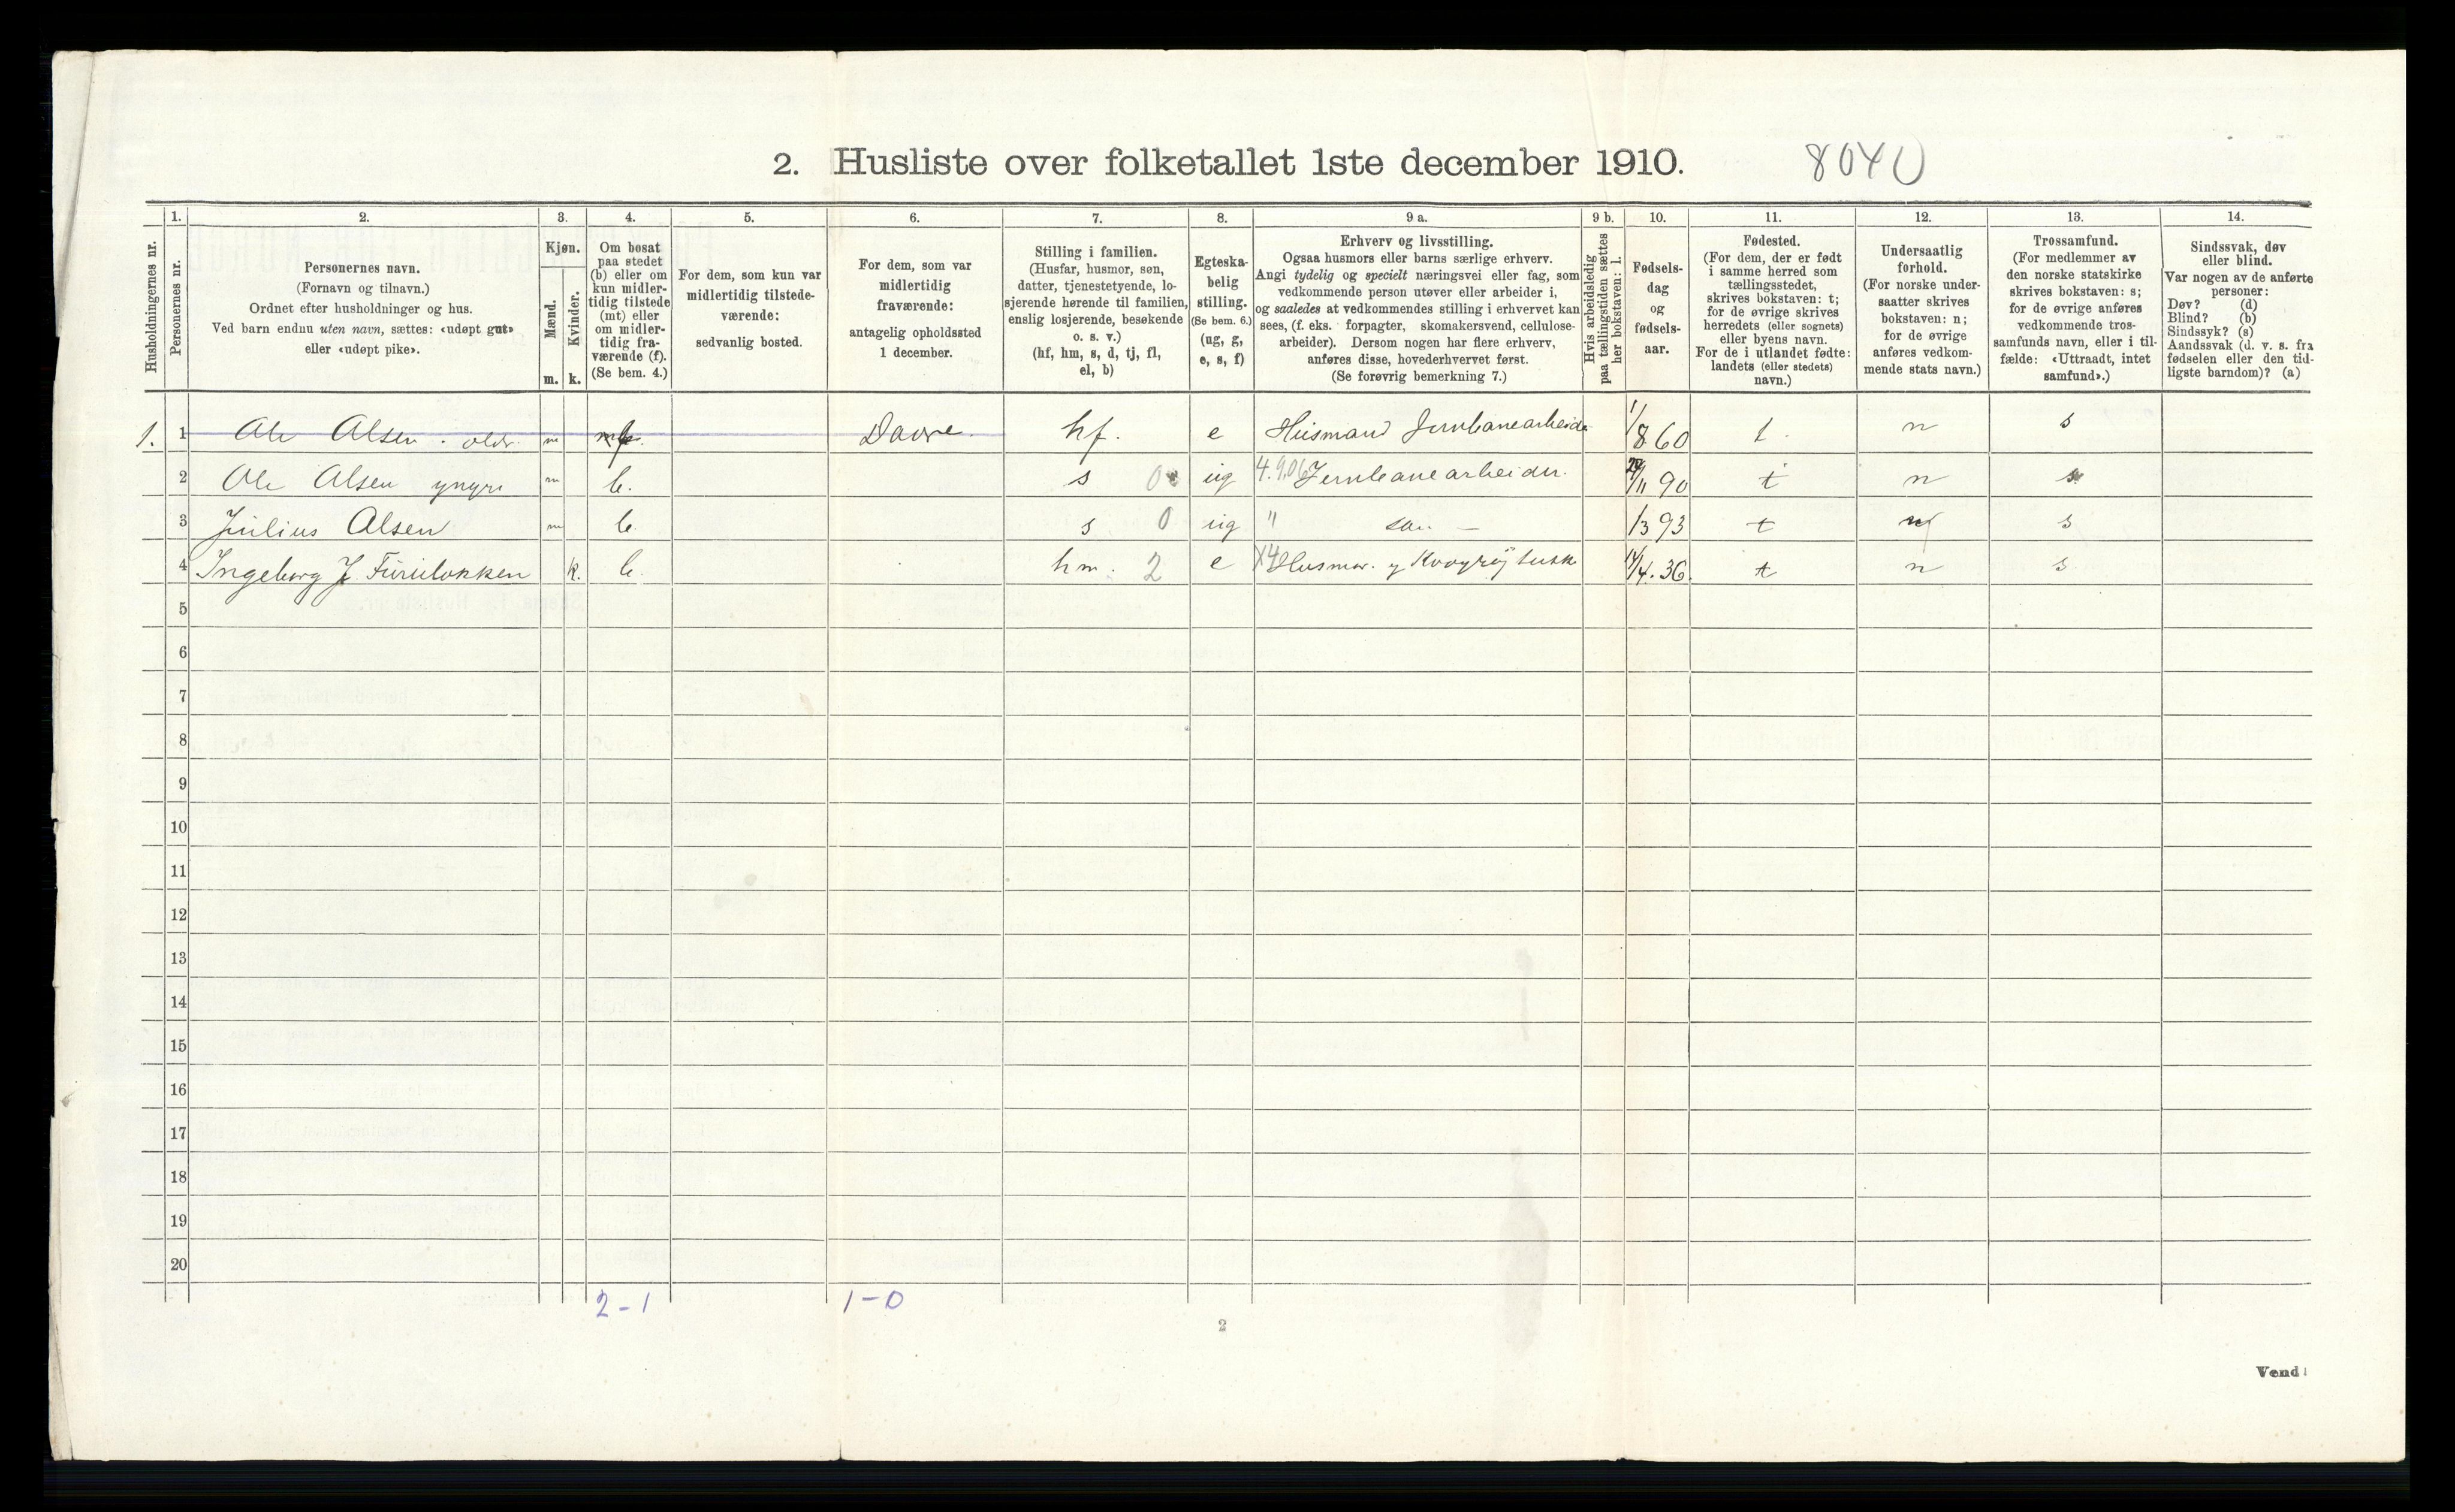 2. Husliste over folketallet 1ste december 1910. 8040
Husholdningernes nr.
1.
Personernes nr.
2.
Personernes navn.
(Fornavn og tilnavn.)
Ordnet efter husholdninger og hus.
Ved barn endnu uten navn, sættes: «udøpt gut»
eller «udøpt pike».
3.
Kjøn.
Mænd.
Kvinder.
m. k.
4.
Om bosat
paa stedet
(b) eller om
kun midler-
tidig tilstede
(mt) eller
om midler-
tidig fra-
værende (f).
(Se bem. 4.)
5.
For dem, som kun var
midlertidig tilstede-
værende:
sedvanlig bosted.
6.
For dem, som var
midlertidig
fraværende:
antagelig opholdssted
1 december.
7.
Stilling i familien.
(Husfar, husmor, søn,
datter, tjenestetyende, lo-
sjerende hørende til familien,
enslig losjerende, besøkende
o. s. v.)
(hf, hm, s, d, tj, fl,
el, b)
8.
Egteska-
belig
stilling.
(Se bem. 6.)
(ug, g,
e, s, f)
9 a.
Erhverv og livsstilling.
Ogsaa husmors eller barns særlige erhverv.
Angi tydelig og specielt næringsvei eller fag, som
vedkommende person utøver eller arbeider i,
og saaledes at vedkommendes stilling i erhvervet kan
sees, (f. eks. forpagter, skomakersvend, cellulose-
arbeider). Dersom nogen har flere erhverv,
anføres disse, hovederhvervet først.
(Se forøvrig bemerkning 7.)
9 b.
Hvis arbeidsledig
paa tællingstiden sættes
her bokstaven: l.
10.
Fødsels-
dag
og
fødsels-
aar.
11.
Fødested.
(For dem, der er født
i samme herred som
tællingsstedet,
skrives bokstaven: t;
for de øvrige skrives
herredets (eller sognets)
eller byens navn.
For de i utlandet fødte:
landets (eller stedets)
navn.)
12.
Undersaatlig
forhold.
(For norske under-
saatter skrives
bokstaven: n;
for de øvrige
anføres vedkom-
mende stats navn.)
13.
Trossamfund.
(For medlemmer av
den norske statskirke
skrives bokstaven: s;
for de øvrige anføres
vedkommende tros-
samfunds navn, eller i til-
fælde: «Uttraadt, intet
samfund».)
14.
Sindssvak, døv
eller blind.
Var nogen av de anførte
personer:
Døv? (d)
Blind? (b)
Sindssyk? (s)
Aandssvak (d. v. s. fra
fødselen eller den tid-
ligste barndom)? (a)
1. 1 Ole Olsen . eldr. m Dovre. hf. e Husmand Jernbanearbeide 1/8 60 t. n s
2 Ole Olsen yngre m b. s 0 ug 4.9.06 Jernbanearbeider. 11 90 t n s
3 Julius Olsen m b. s 0 ug " 1/3 93 t n s
4 Ingeborg J. Furulokken k. b. hm. 2 e 14/4. 36. t n s
5
6
7
8
9
10
11
12
13
14
15
16
17
18
19
20
2-1 1-0
2
Vend!